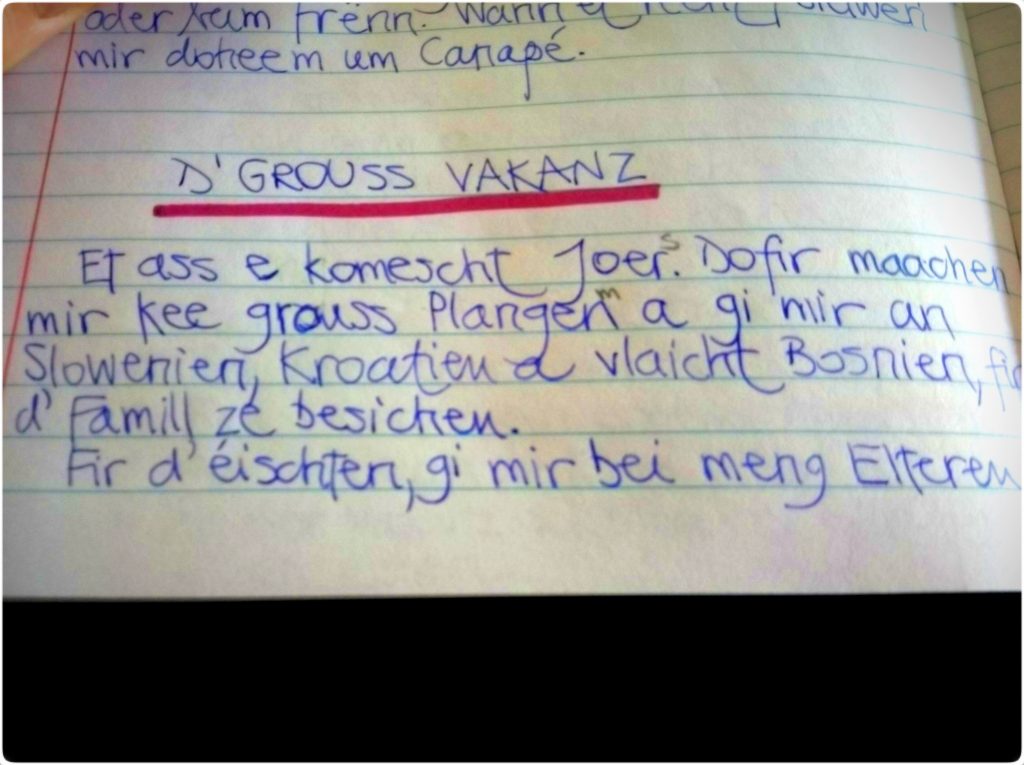 oder
mir doheem um Canapé.
D'GROUSS VAKANZ
Et ass e komescht Joer. Dofir maachen
mir kee grouss Plangen a gi mir an
Slowenien, Kroatien a vlaicht Bosnien, fir
d'Famill ze besichen.
Fir d'éischten, gi mir bei meng Elteren